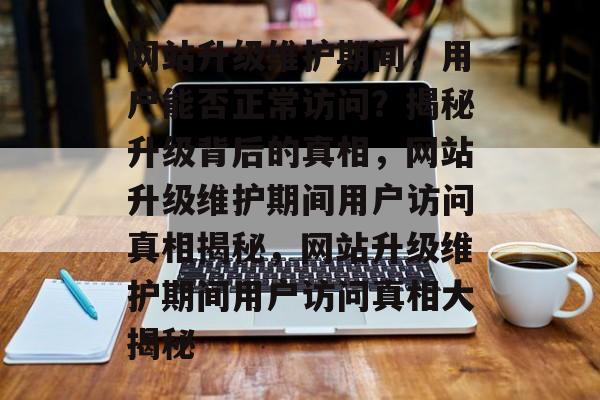 网站升级维护期间，用
户能否正常访问？揭秘
升级背后的真相，网站
升级维护期间用户访问
真相揭秘，网站升级维
护期间用户访问真相大
揭秘